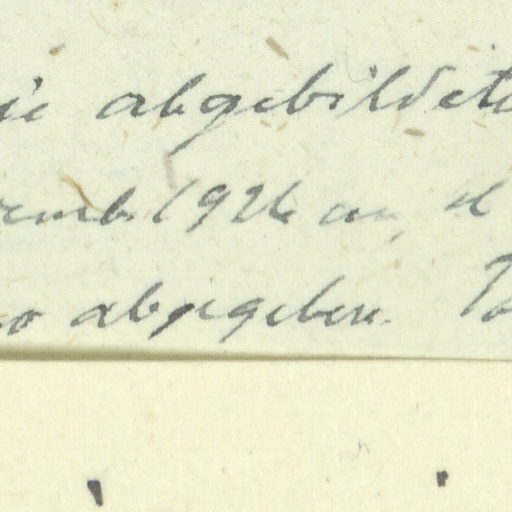 ie abgebildet
emb. 1926 an, d
abgegeben.